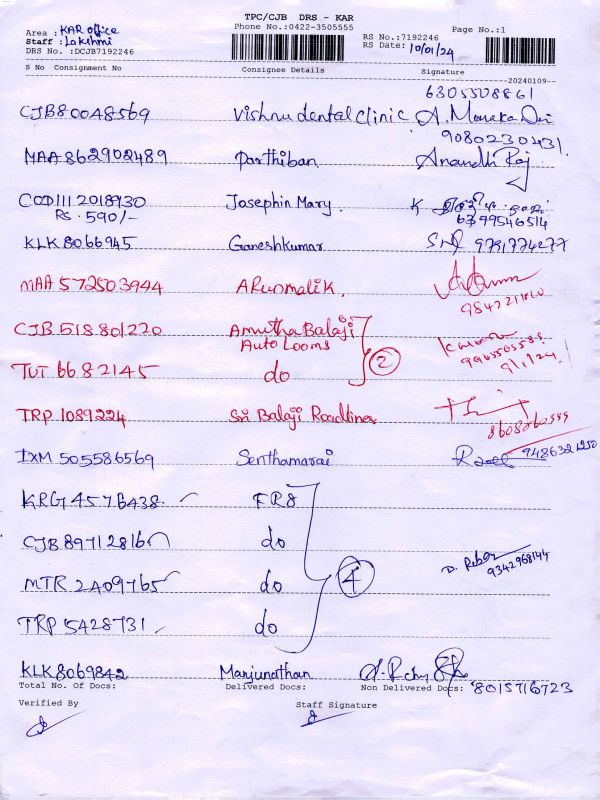 TPC/CJB DRS - KAR
Phone No.:0422-3505555
Area : KAR office
Staff : Lakshmi
DRS No. :DCJB7192246
RS No.:7192246
RS Date: 10/01/24
Page No.:1
S No Consignment No Consignee Details Signature
--20240109--
6305508861
CJB80048569 Vishnu dental Clinic
MAA 862902489 Parthiban Anandh Raj
COD1112018930 Josephin Mary.
Rs. 590/- 6399546514
KLK 8066945 Ganeshkumar 9791774277
MAA 572503944 ARunmalik.
CJB 518801220 Amutha Balaji
Auto Looms
9/1/24
TUT 6682145 do 2
TRP 1089224 Sri Balaji Roadlines
8608060555
IXM 505586569 Senthamarai 9486321250
KRG 4576438 FR8
CJB 89712816 do
MTR 2A09765 do 4 9342968144
TRP 5428731 do
KLK8069842 Manjunathan
Total No. Of Docs: Delivered Docs: Non Delivered Docs: 8015716723
Verified By Staff Signature